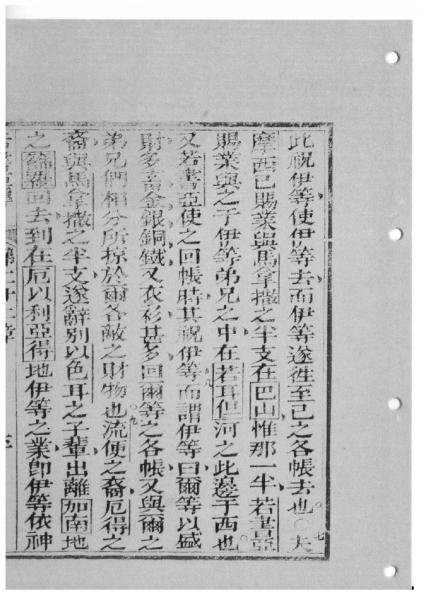 此祝伊等使伊等去而伊等遂徃至已之各帳去也○夫
摩西已賜業與馬拿撒之半支在巴山惟那一半若書亞
賜業與之于伊等弟兄之中在若耳但河之此邊于西也
又若書亞使之回帳時其祝伊等而謂伊等曰爾等以盛
財多畜金銀銅鐵又衣衫甚多回爾等之各帳又與爾之
弟兄們相分所掠於爾各敵之財物也流便之裔厄得之
裔與馬拿撒之半支遂辭別以色耳之子輩出離加南地
之 回去到在厄以利亞得地伊等之業即伊等依神
第二十二章